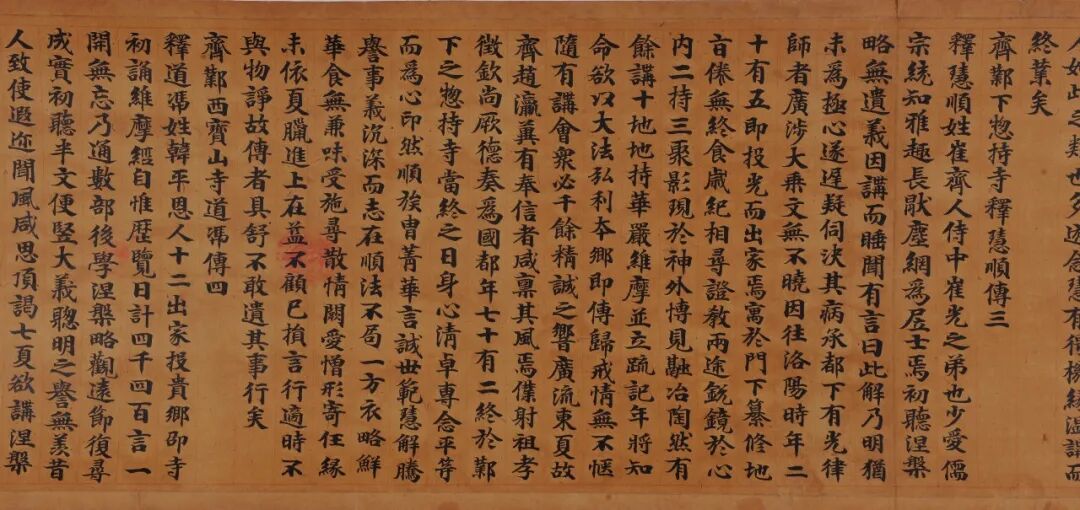 終業矣
齊鄴下惣持寺釋慧順傳三
釋慧順姓崔齊人侍中崔光之弟也少愛儒
宗統知雅趣長猒塵網爲居士焉初聽涅槃
略無遺義因講而睡聞有言曰此解乃明猶
未爲極心遂遲疑伺決其病承都下有光律
師者廣涉大乘文無不曉因往洛陽時年二
十有五即投光而出家焉寓於門下纂修地
旨倐無終食歲紀相尋證教兩途鋭鏡於心
内二持三聚影現於神外博見融冶陶然有
餘講十地地持華嚴維摩並立疏記年將知
命欲以大法弘利本鄉即傳歸戒情無不愜
隨有講會衆必千餘精誠之響廣流東夏故
齊趙瀛冀有奉信者咸稟其風焉僕射祖孝
徵欽尚厥德奏爲國都年七十有二終於鄴
下之惣持寺當終之日身心清卓專念平等
而爲心印然順族冑菁華言誠世範慧解騰
譽事義沉深而志在順法不苟一方衣略鮮
華食無兼味受施尋散情關愛憎形寄任緣
未依夏臘進上在益不顧已損言行適時不
與物諍故傳者具舒不敢遺其事行矣
齊鄴西寶山寺道馮傳四
釋道馮姓韓平恩人十二出家投貴鄉邵寺
初誦維摩經自惟歴覽日計四千四百言一
開無忘乃通數部後學涅槃略觀遠節復尋
成實初聽半文便竪大義聦明之譽無羡昔
人致使遐迩聞風咸思頂謁七夏欲講涅槃